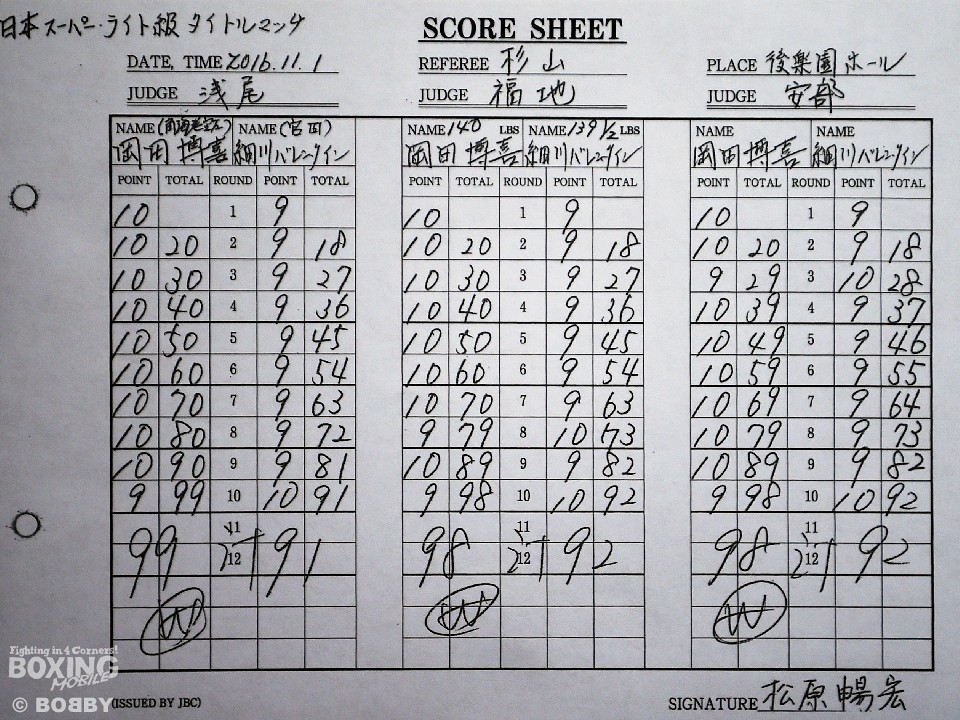 日本スーパー・ライト級 タイトルマッチ
SCORE SHEET
DATE, TIME 2016.11.1 REFEREE 杉山 PLACE 後楽園ホール
JUDGE 浅尾 JUDGE 福地 JUDGE 安部
NAME NAME (宮田) NAME 140 LBS NAME 139 1/2 LBS NAME NAME
岡田博喜 細川バレンタイン 岡田博喜 細川バレンタイン 岡田博喜 細川バレンタイン
POINT TOTAL ROUND POINT TOTAL POINT TOTAL ROUND POINT TOTAL POINT TOTAL ROUND POINT TOTAL
10 1 9 10 1 9 10 1 9
10 20 2 9 18 10 20 2 9 18 10 20 2 9 18
10 30 3 9 27 10 30 3 9 27 9 29 3 10 28
10 40 4 9 36 10 40 4 9 36 10 39 4 9 37
10 50 5 9 45 10 50 5 9 45 10 49 5 9 46
10 60 6 9 54 10 60 6 9 54 10 59 6 9 55
10 70 7 9 63 10 70 7 9 63 10 69 7 9 64
10 80 8 9 72 9 79 8 10 73 10 79 8 9 73
10 90 9 9 81 10 89 9 9 82 10 89 9 9 82
9 99 10 10 91 9 98 10 10 92 9 98 10 10 92
11 11 11
99 91 98 92 98 92
12 12 12
W W W
Fighting in 4 Corners!
BOXING
MOBILE
© BOBBY
(ISSUED BY JBC) SIGNATURE 松原暢宏